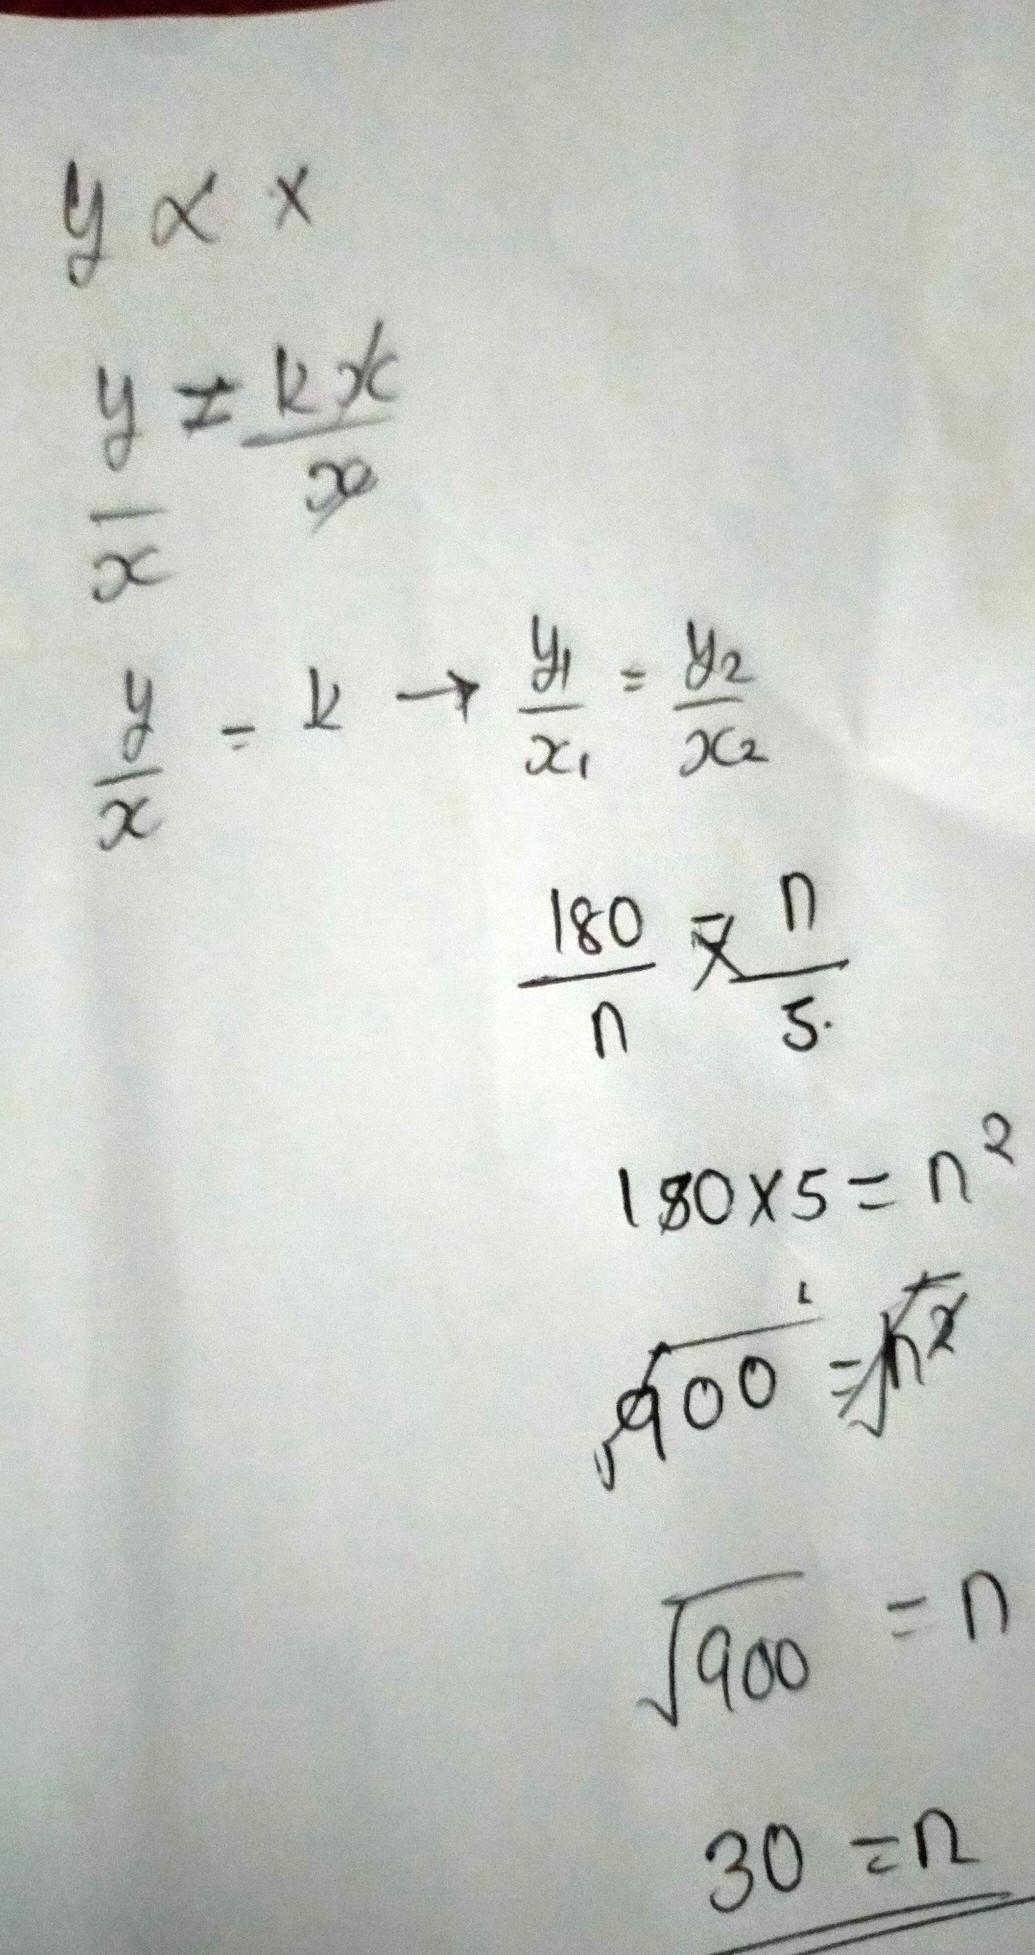 y ∝ x
y/x = kx/x
y/x = k → y₁/x₁ = y₂/x₂
180/n = n/5.
180×5 = n²
√900 = √n²
√900 = n
30 = n